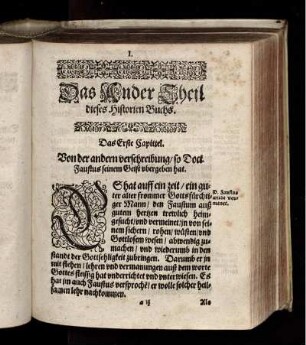 I.
Das Ander Theil
dieses Historien Buchs.
Das Erste Capittel.
Von der andern verschreibung/ so Doct.
Faustus seinem Geist vbergeben hat.
ES hat auff ein zeit/ ein gu-
ter alter frommer Gottsfürchti-
ger Mann/ den Faustum auß
gutem hertzen trewlich heim-
gesucht/ vnd vermeinet/ jn von sei-
nem sichern/ rohen/ wüsten/ vnd
Gottlosem wesen/ abwendig zu-
machen/ vnd wiederumb in den
standt der Gottseligkeit zubringen. Darumb er jn
mit flehen/ lehren vnd vermanungen auß dem worte
Gottes fleissig hat vnderrichtet vnd vnterwiesen. Es
hat jm auch Faustus versprochē/ er wolle solcher heil-
samen lehr nachkommen.
D. Faustus
Als